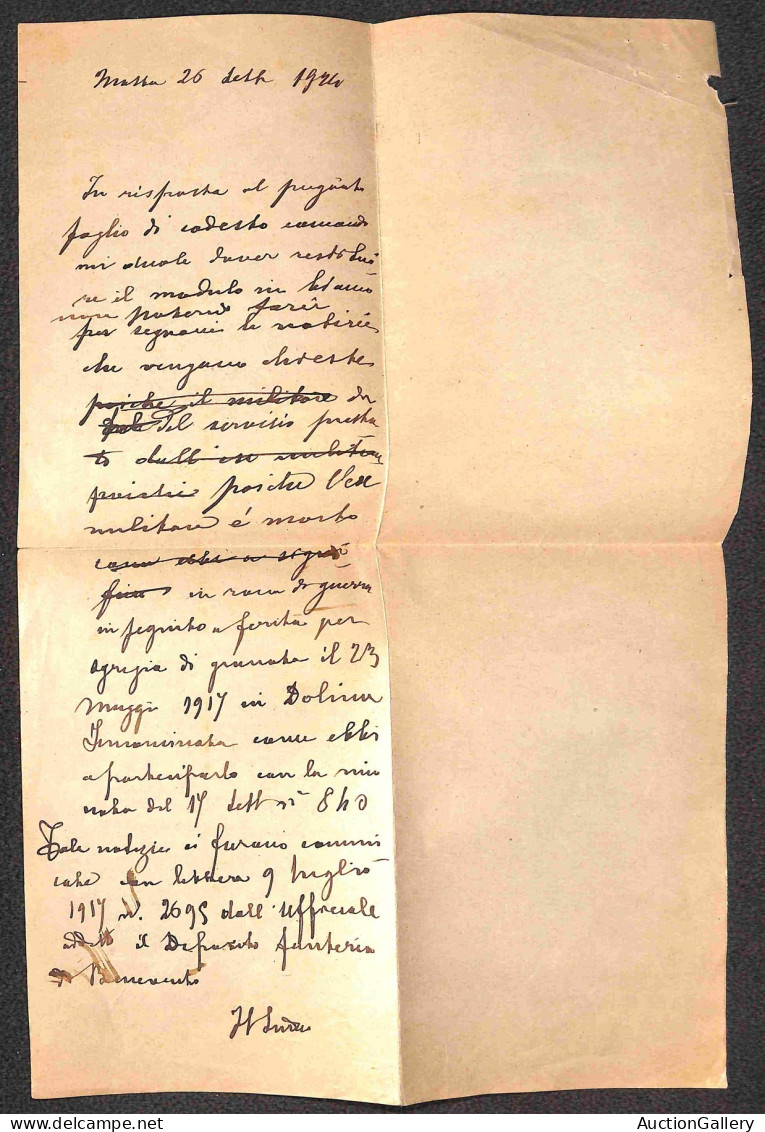 Massa 26 Sett 1920
In risposta al pregiato
foglio di codesto comando
mi duole dover restitui
re il modulo in bianco
non potendo
per segnarvi le notizie
che vengano chieste
poiche il militare
del servizio presta
to dall ex militare
poiche l'ex
militare é morto
come ebbi a signi
ficare in zona di guerra
in seguito a ferita per
ischeggia di granata il 23
Maggio 1917 in Dolina
Innominata come ebbi
a parteciparlo con la mia
nota del 17 Sett n° 840
Tale notizie ci furano communi
cate con lettera 9 luglio
1917 N. 2695 dall'Ufficiale
addetto il Deposito fanteria
di Benevento
Il Sindaco
AuctionGallery